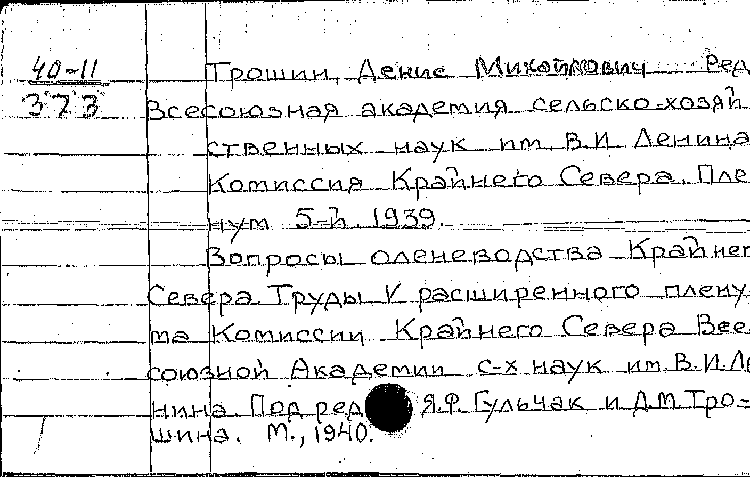 40-11
373
Трошин, Денис Михайлович Ред
Всесоюзная академия сельско-хозяй
ственных наук им. В.И. Ленина
Комиссия Крайнего Севера. Пле
нум 5-й. 1939.
Вопросы оленеводства Крайнег
Севера. Труды V расширенного плену-
ма Комиссии Крайнего Севера Все
союзной Академии с-х наук им. В.И. Ле
нина. Под ред Я.Ф. Гульчак и Д.М. Тро-
шина. М., 1940.